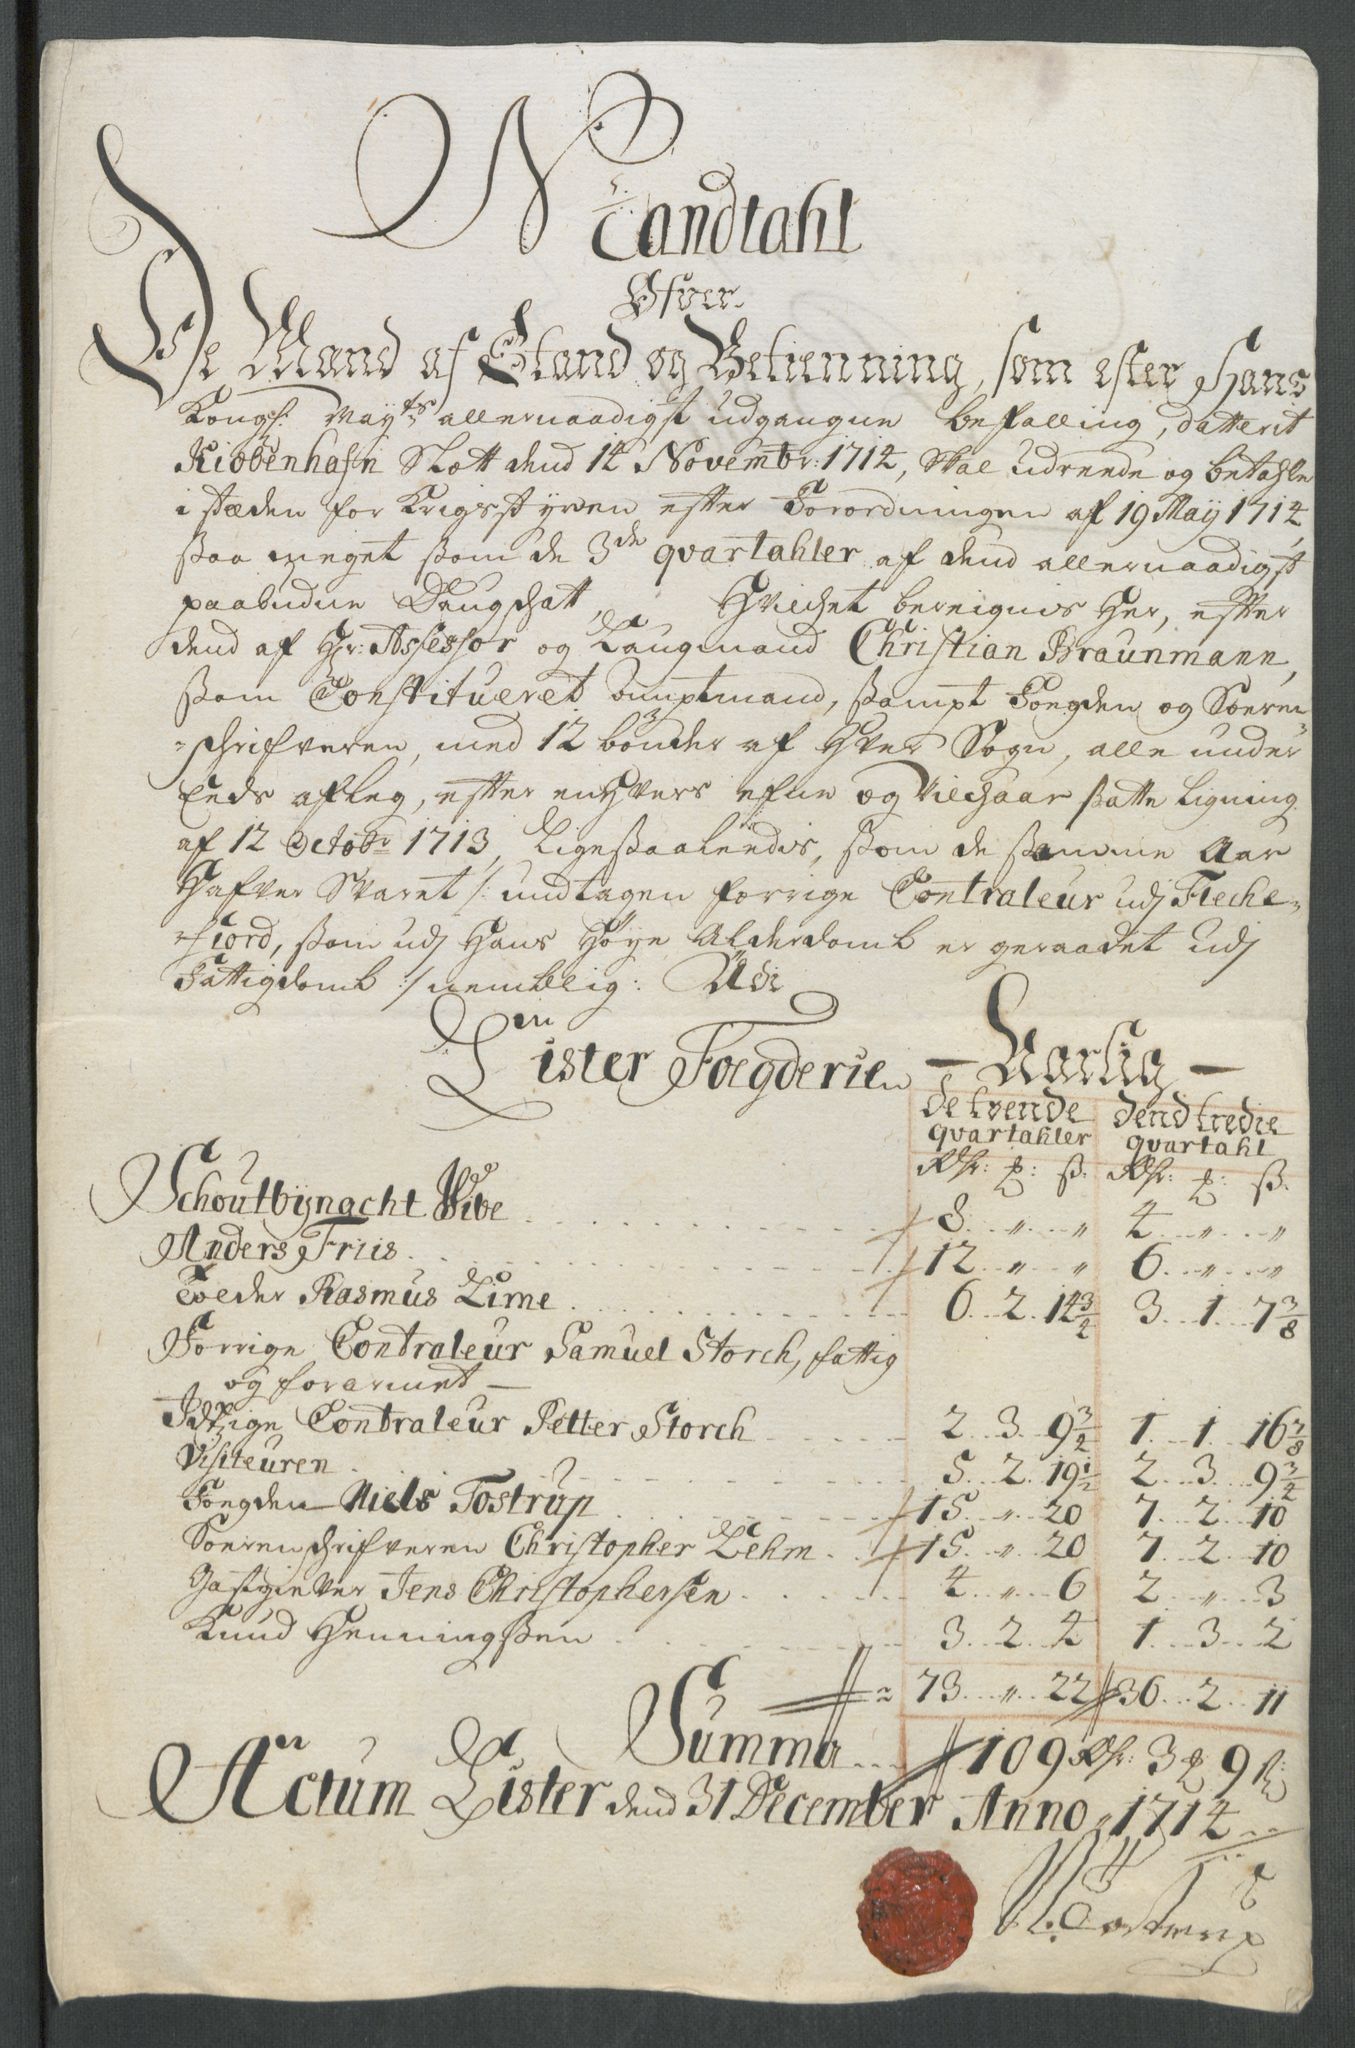 Mandtahl
Ofver
De Mænd af Stand og Betienning, som efter Hans
Kongl: Mayts allernaadigst udgangne befalling, datterit
Kiøbenhafn Slott dend 14 Novembr: 1714, skal udreede og betahle
i stæden for Krigsstyren efter Forordningen af 19 Maij 1714,
ssaa meget ssom de 3de qvartahler af dend allernaadigst
paabudne Dangschatt, Hvilchet bereignis her, efter
dend af Hr: Assessor og Laugmand Christian Braunmann,
ssom Constitueret ambtmand, ssampt Foegden og Soeren-
schrifveren, med 12 bønder af Hver Sogn, alle under
Eeds afleg, efter enhvers efne og Vilchaar ssatte Ligning
af 12 Octobr 1713, Ligessaaleedis, ssom de ssamme Aar
Hafver Svaret /: undtagen forrige Contraleur udj Fleche-
fiord, ssom udj Hans Høye Alderdomb er geraadet udj
Fattigdomb :/ nemblig: Udi
Lister Foegderie – Narlig –
de tvende qvartahler | dend tredie qvartahl
Rdr: ƶ: ss. | Rdr: ƶ: ss.
Schoutbynacht Wibe . . . 8 . . " . . " | 4 . . " . . "
Anders Friis . . . 12 . . " . . " | 6 . . " . . "
Toeder Rasmus Lime . . . 6 . . 2 . . 14 3/4 | 3 . . 1 . . 7 3/8
Forrige Contraleur Samuel Storch, fattig
og forarmet –
Itzige Contraleur Petter Storch . . . 2 . . 3 . . 9 3/4 | 1 . . 1 . . 16 7/8
Visiteuren . . . 5 . . 2 . . 19 1/2 | 2 . . 3 . . 9 3/4
Foegden Niels Tostrup . . . 15 . . " . . 20 | 7 . . 2 . . 10
Soerenschrifveren Christopher Lehm . . 15 . . " . . 20 | 7 . . 2 . . 10
Gastgiever Jens Christophersen . . . 4 . . " . . 6 | 2 . . " . . 3
Knud Henningssen . . . 3 . . 2 . . 4 | 1 . . 3 . . 2
73 . . " . . 22 | 36 . . 2 . . 11
Summa . . . 109 Rdr: 3 ƶ 9 ss:
Actum Lister dend 31 December Anno 1714
N: Tostrup